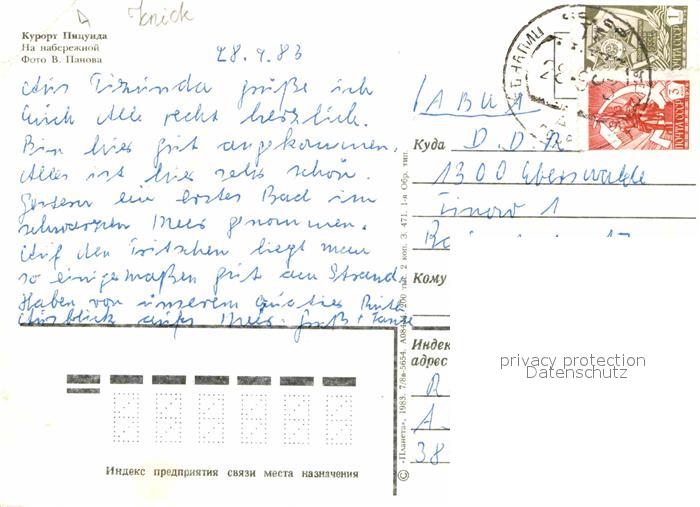 Knick
Курорт Пицунда
На набережной
Фото В. Панова
28.9.83
Aus Pizunda grüße ich
Euch Alle recht herzlich.
Bin hier gut angekommen.
Alles ist hier sehr schön.
Gestern ein erstes Bad im
schwarzen Meer genommen.
Auf den Pritschen liegt man
so einigermaßen gut am Strand
Haben von unserem Quartier
Ausblick aufs Meer. Gruß + Tante
1
ПОЧТА СССР
3
ПОЧТА СССР
Куда D.D.R.
1300 Eberswalde
Finow 1
Кому
Индекс
адрес
R
A.
38
privacy protection
Datenschutz
© «Планета», 1983. 7/8з-5654. 200 тыс. 2 коп. З. 471. 1-я Обр. тип.
Индекс предприятия связи места назначения